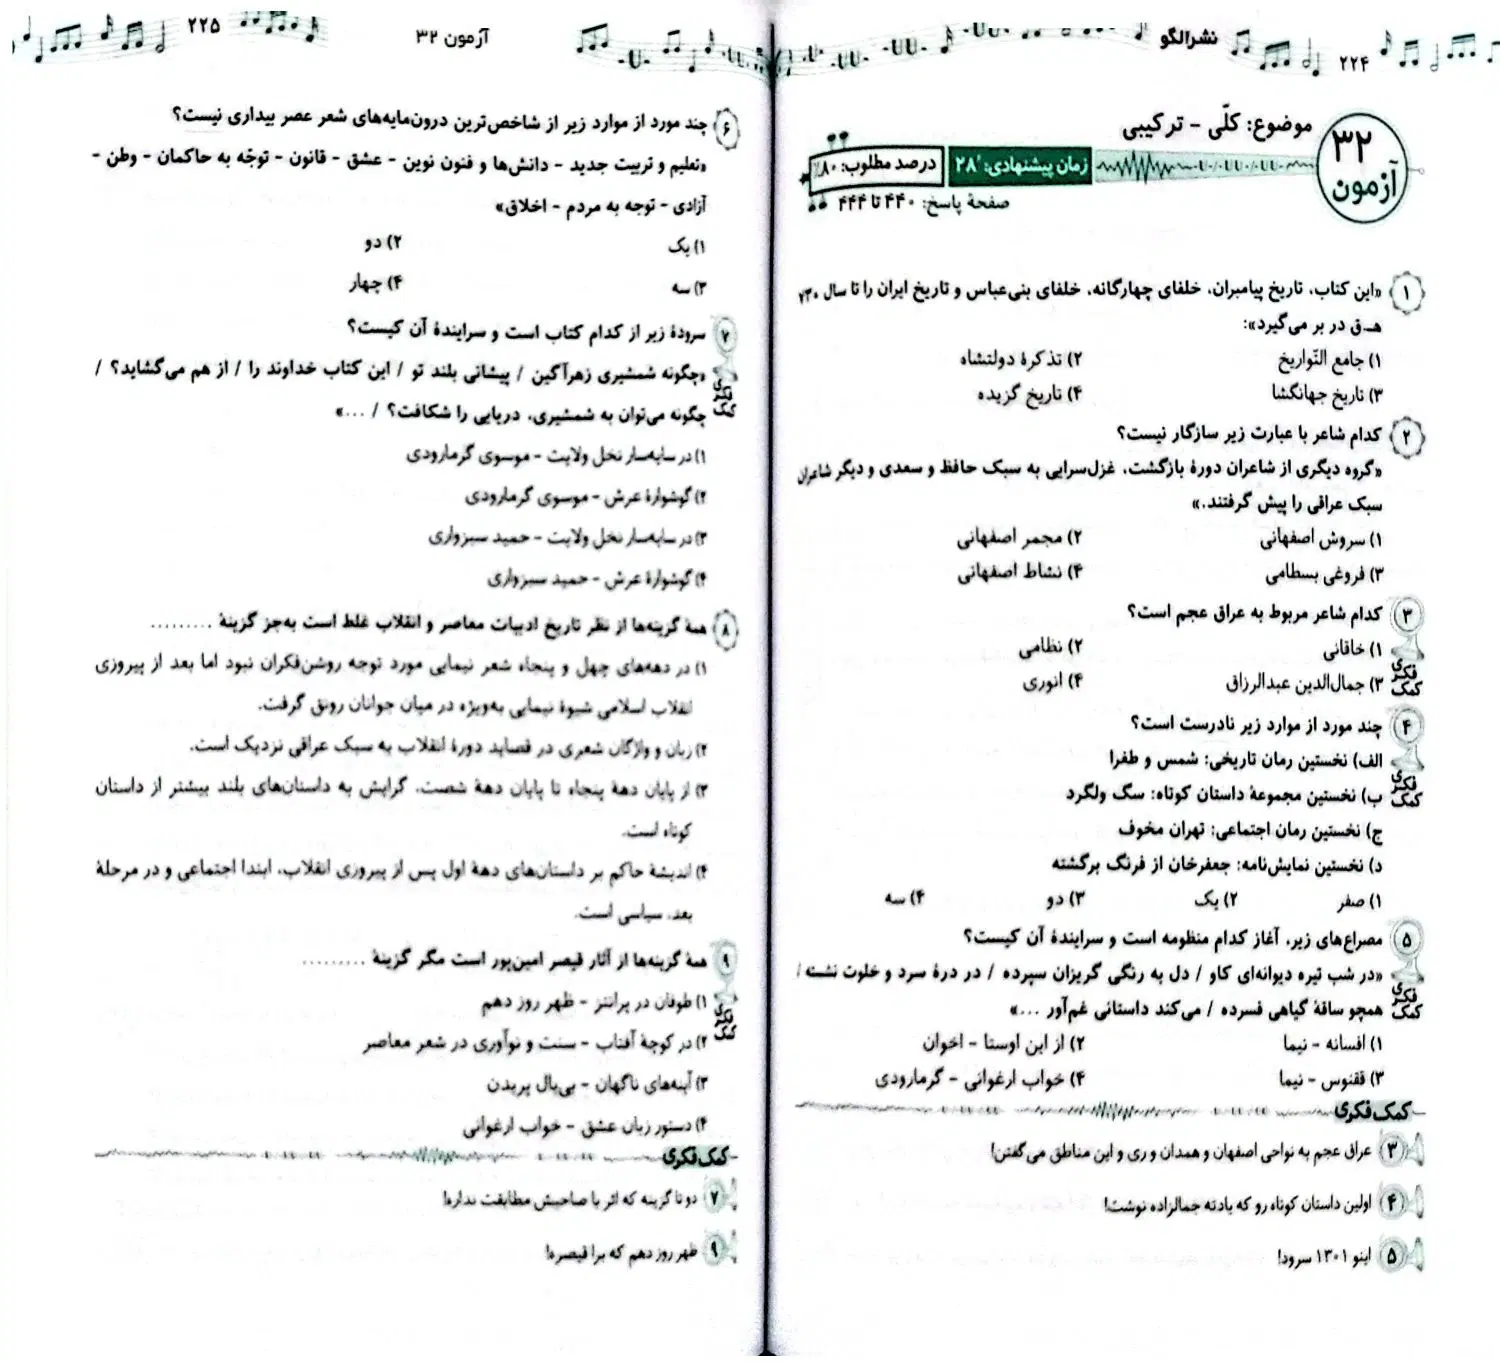 نشرالگو
۲۲۴
موضوع: کلّی - ترکیبی
۳۲
آزمون
زمان پیشنهادی: ۲۸′
درصد مطلوب: ۸۰٪
صفحهٔ پاسخ: ۴۴۰ تا ۴۴۴
۱ «این کتاب، تاریخ پیامبران، خلفای چهارگانه، خلفای بنی‌عباس و تاریخ ایران را تا سال ۷۳۰
هـ.ق در بر می‌گیرد»:
۱) جامع التّواریخ ۲) تذکرهٔ دولتشاه
۳) تاریخ جهانگشا ۴) تاریخ گزیده
۲ کدام شاعر با عبارت زیر سازگار نیست؟
«گروه دیگری از شاعران دورهٔ بازگشت، غزل‌سرایی به سبک حافظ و سعدی و دیگر شاعران
سبک عراقی را پیش گرفتند.»
۱) سروش اصفهانی ۲) مجمر اصفهانی
۳) فروغی بسطامی ۴) نشاط اصفهانی
۳ کدام شاعر مربوط به عراق عجم است؟
۱) خاقانی ۲) نظامی
کمک فکری
۳) جمال‌الدین عبدالرزاق ۴) انوری
۴ چند مورد از موارد زیر نادرست است؟
الف) نخستین رمان تاریخی: شمس و طغرا
کمک فکری
ب) نخستین مجموعهٔ داستان کوتاه: سگ ولگرد
ج) نخستین رمان اجتماعی: تهران مخوف
د) نخستین نمایش‌نامه: جعفرخان از فرنگ برگشته
۱) صفر ۲) یک ۳) دو ۴) سه
۵ مصراع‌های زیر، آغاز کدام منظومه است و سرایندهٔ آن کیست؟
«در شب تیره دیوانه‌ای کاو / دل به رنگی گریزان سپرده / در درهٔ سرد و خلوت نشسته /
کمک فکری
همچو ساقهٔ گیاهی فسرده / می‌کند داستانی غم‌آور ...»
۱) افسانه - نیما ۲) از این اوستا - اخوان
۳) ققنوس - نیما ۴) خواب ارغوانی - گرمارودی
کمک فکری
۳ عراق عجم به نواحی اصفهان و همدان و ری و این مناطق می‌گفتن!
۴ اولین داستان کوتاه رو که یادته جمالزاده نوشت!
۵ اینو ۱۳۰۱ سرود!
آزمون ۳۲
۲۲۵
۶ چند مورد از موارد زیر از شاخص‌ترین درون‌مایه‌های شعر عصر بیداری نیست؟
«تعلیم و تربیت جدید - دانش‌ها و فنون نوین - عشق - قانون - توجّه به حاکمان - وطن -
آزادی - توجه به مردم - اخلاق»
۱) یک ۲) دو
۳) سه ۴) چهار
۷ سرودهٔ زیر از کدام کتاب است و سرایندهٔ آن کیست؟
«چگونه شمشیری زهرآگین / پیشانی بلند تو / این کتاب خداوند را / از هم می‌گشاید؟ /
کمک فکری
چگونه می‌توان به شمشیری، دریایی را شکافت؟ / ...»
۱) در سایه‌سار نخل ولایت - موسوی گرمارودی
۲) گوشوارهٔ عرش - موسوی گرمارودی
۳) در سایه‌سار نخل ولایت - حمید سبزواری
۴) گوشوارهٔ عرش - حمید سبزواری
۸ همهٔ گزینه‌ها از نظر تاریخ ادبیات معاصر و انقلاب غلط است به‌جز گزینهٔ .........
۱) در دهه‌های چهل و پنجاه شعر نیمایی مورد توجه روشن‌فکران نبود اما بعد از پیروزی
انقلاب اسلامی شیوهٔ نیمایی به‌ویژه در میان جوانان رونق گرفت.
۲) زبان و واژگان شعری در قصاید دورهٔ انقلاب به سبک عراقی نزدیک است.
۳) از پایان دههٔ پنجاه تا پایان دههٔ شصت، گرایش به داستان‌های بلند بیشتر از داستان
کوتاه است.
۴) اندیشهٔ حاکم بر داستان‌های دههٔ اول پس از پیروزی انقلاب، ابتدا اجتماعی و در مرحلهٔ
بعد، سیاسی است.
۹ همهٔ گزینه‌ها از آثار قیصر امین‌پور است مگر گزینهٔ .........
۱) طوفان در پرانتز - ظهر روز دهم
کمک فکری
۲) در کوچهٔ آفتاب - سنت و نوآوری در شعر معاصر
۳) آینه‌های ناگهان - بی‌بال پریدن
۴) دستور زبان عشق - خواب ارغوانی
کمک فکری
۷ دو تا گزینه که اثر با صاحبش مطابقت نداره!
۹ ظهر روز دهم که برا قیصره!